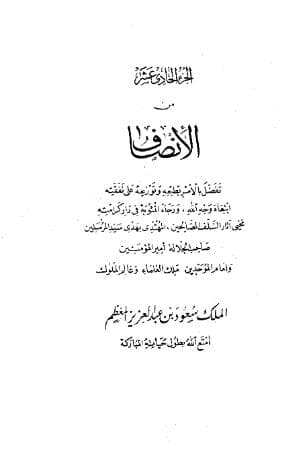 الجزء الحادي عشر
من
الإنصاف
تفضل بالأمر بطبعه وتوزيعه على نفقته
ابتغاء وجه الله، ورجاء المثوبة في دار كرامته
محيي آثار السلف الصالحين، المهتدي بهدي سيد المرسلين
صاحب الجلالة أمير المؤمنين
وإمام الموحدين ملك العلماء وعالم الملوك
الملك سعود بن عبد العزيز المعظم
أمتع الله بطول حياته المباركة